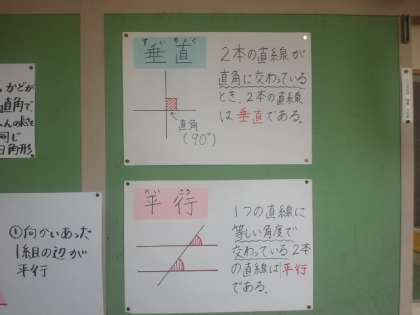 かどが
直角で
同じ
角形
①向かいあった
1組の辺が
平行
すいちょく
垂直
直角
(90°)
2本の直線が
直角に交わっている
とき、2本の直線
は垂直である。
へいこう
平行
1つの直線に
等しい角度で
交わっている2本
の直線は平行
である。